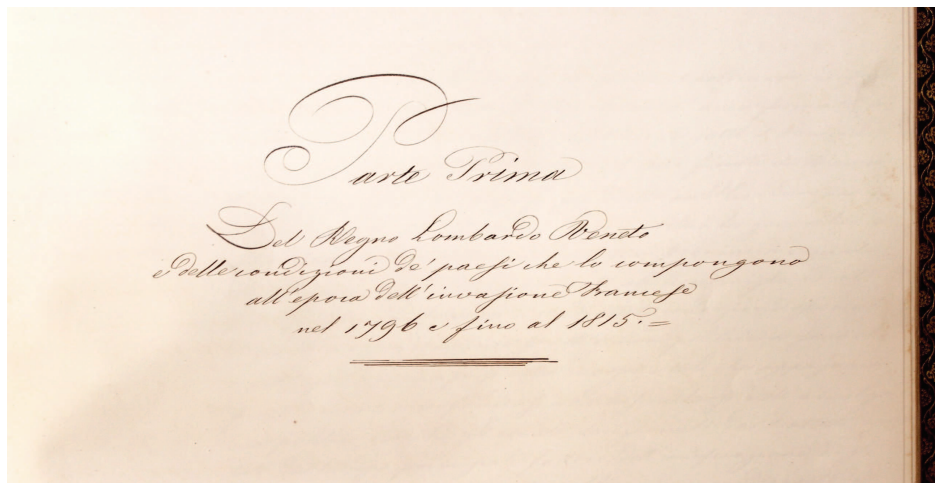 Parte Prima
Del Regno Lombardo Veneto
e delle condizioni de' paesi che lo compongono
all'epoca dell'invasione Francese
nel 1796 e fino al 1815.=